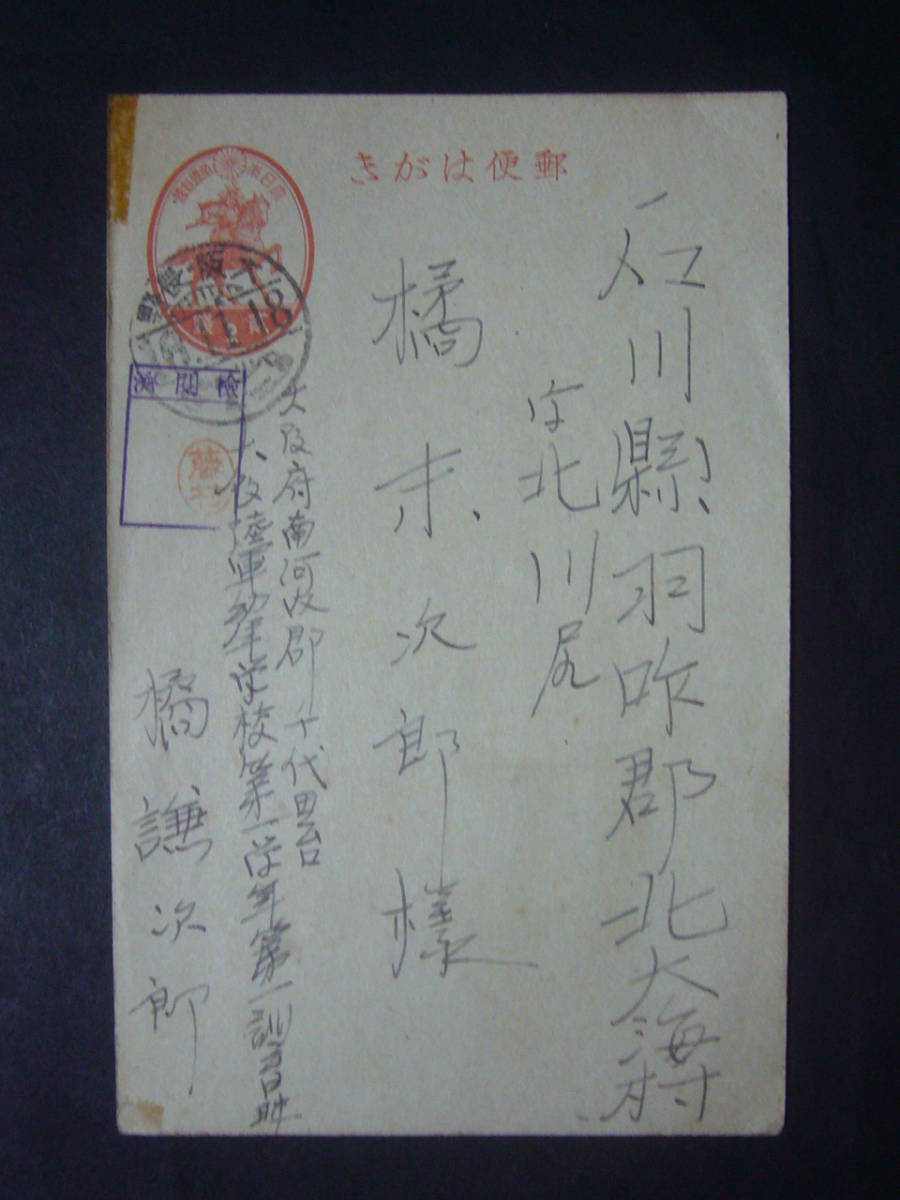 郵便はがき
石川縣羽咋郡北大海村
字北川尻
橘末次郎様
大阪府南河内郡千代田台
大阪陸軍幼年学校第一学年第一訓育班
橘謙次郎
検閲済